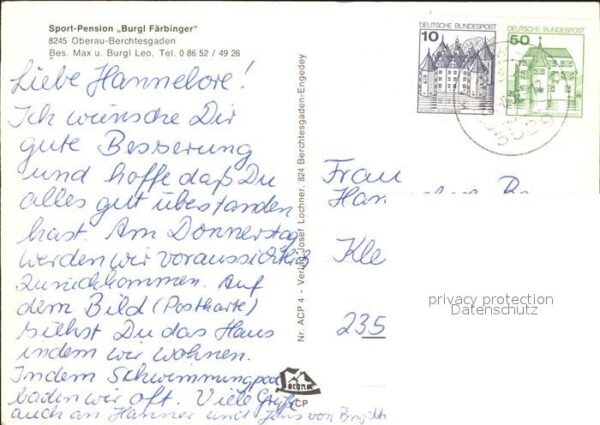 Sport-Pension „Burgl Färbinger"
8245 Oberau-Berchtesgaden
Bes. Max u. Burgl Leo. Tel. 0 86 52 / 49 26
Liebe Hannelore!
Ich wünsche Dir
gute Besserung
und hoffe daß Du
alles gut überstanden
hast. Am Donnerstag
werden wir voraussichtlich
zurückkommen. Auf
dem Bild (Postkarte)
siehst Du das Haus
indem wir wohnen.
Indem Schwimmingpool
baden wir oft. Viele Grüße
auch an Hanner und Jens von
Nr. ACP 4 - Verlag Josef Lochner, 824 Berchtesgaden-Engedey
ACP
10
DEUTSCHE BUNDESPOST
50
DEUTSCHE BUNDESPOST
Frau
Kle
235
privacy protection
Datenschutz